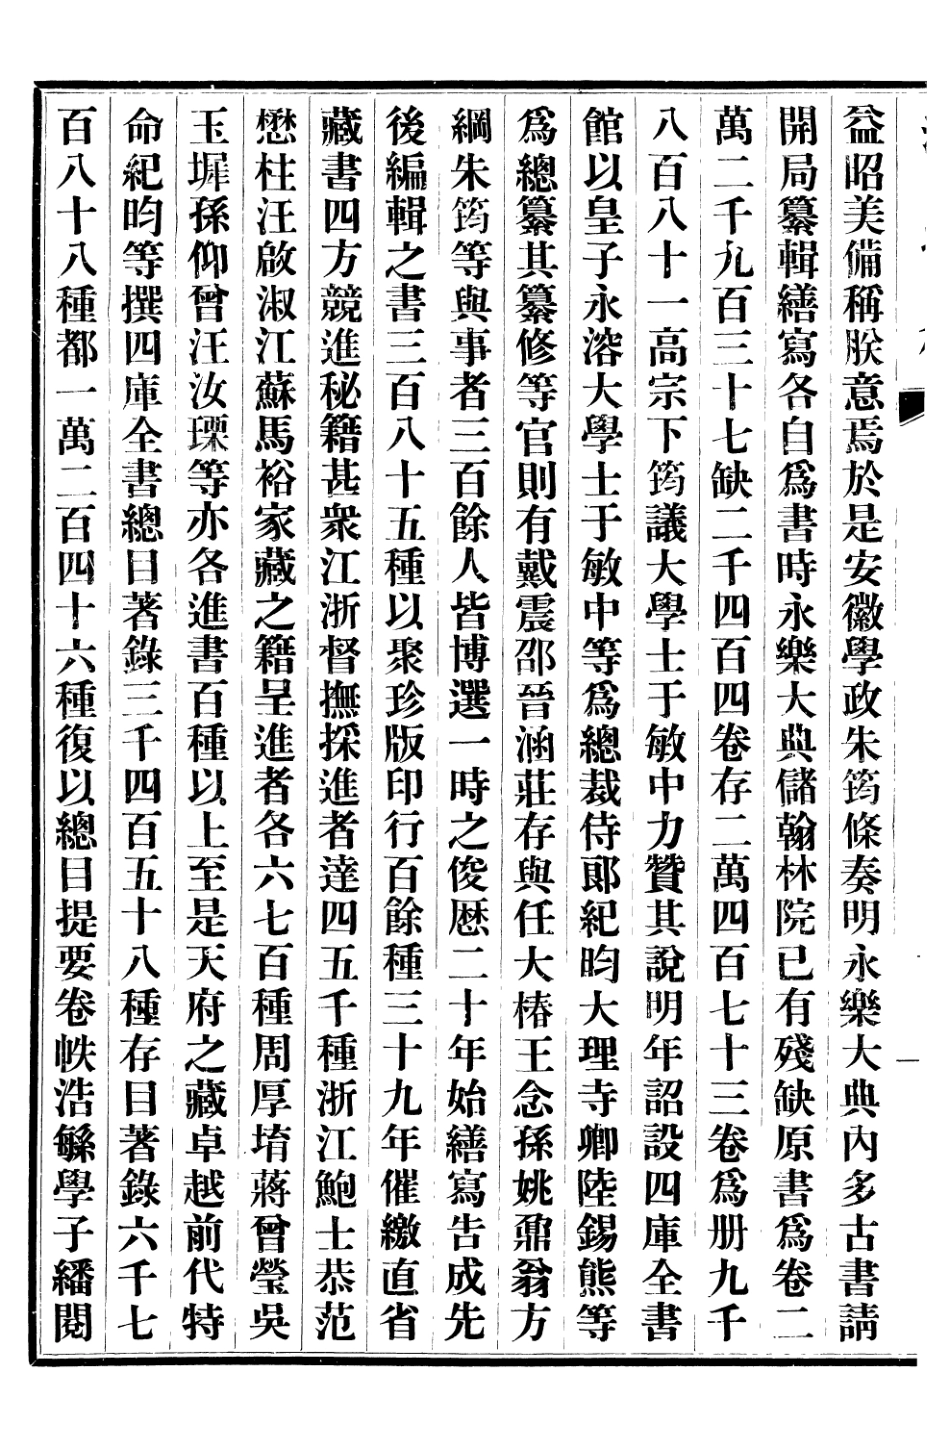 益昭美備稱朕意焉於是安徽學政朱筠條奏明永樂大典內多古書請
開局纂輯繕寫各自爲書時永樂大典儲翰林院已有殘缺原書爲卷二
萬二千九百三十七缺二千四百四卷存二萬四百七十三卷爲册九千
八百八十一高宗下筠議大學士于敏中力贊其說明年詔設四庫全書
館以皇子永溶大學士于敏中等爲總裁侍郞紀昀大理寺卿陸錫熊等
爲總纂其纂修等官則有戴震邵晉涵莊存與任大椿王念孫姚鼐翁方
綱朱筠等與事者三百餘人皆博選一時之俊厯二十年始繕寫吿成先
後編輯之書三百八十五種以聚珍版印行百餘種三十九年催繳直省
藏書四方競進秘籍甚衆江浙督撫採進者達四五千種浙江鮑士恭范
懋柱汪啟淑江蘇馬裕家藏之籍呈進者各六七百種周厚堉蔣曾瑩吳
玉墀孫仰曾汪汝瑮等亦各進書百種以上至是天府之藏卓越前代特
命紀昀等撰四庫全書總目著錄三千四百五十八種存目著錄六千七
百八十八種都一萬二百四十六種復以總目提要卷帙浩繁學子繙閱